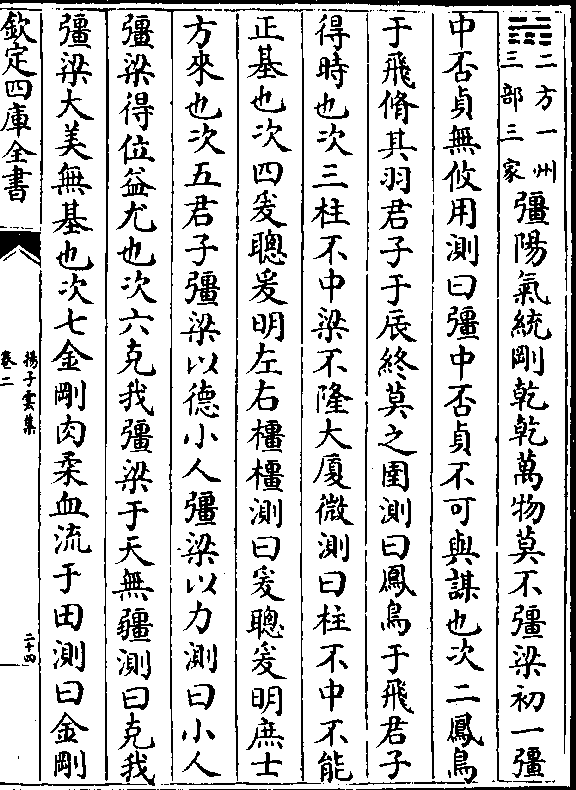 二方一州
三部三家
彊陽氣統剛乾乾萬物莫不彊梁初一彊
中否貞無攸用測曰彊中否貞不可與謀也次二鳳鳥
于飛脩其羽君子于辰終莫之圉測曰鳳鳥于飛君子
得時也次三柱不中梁不隆大廈微測曰柱不中不能
正基也次四爰聰爰明左右橿橿測曰爰聰爰明庶士
方來也次五君子彊梁以德小人彊梁以力測曰小人
彊梁得位益尤也次六克我彊梁于天無疆測曰克我
彊梁大美無基也次七金剛肉柔血流于田測曰金剛
欽定四庫全書
揚子雲集
卷二
二十四